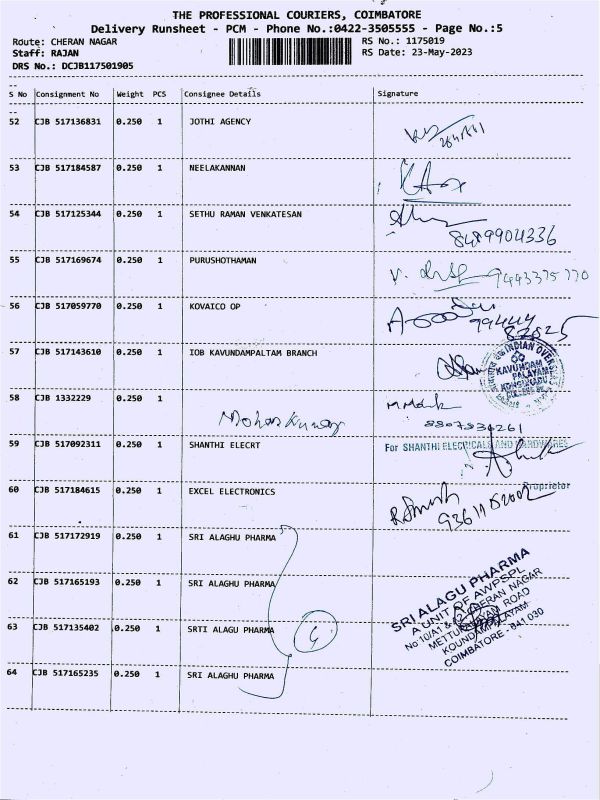 THE PROFESSIONAL COURIERS, COIMBATORE
Delivery Runsheet - PCM - Phone No.:0422-3505555 - Page No.:5
Route: CHERAN NAGAR RS No.: 1175019
Staff: RAJAN RS Date: 23-May-2023
DRS No.: DCJB117501905
S No Consignment No Weight PCS Consignee Details Signature
52 CJB 517136831 0.250 1 JOTHI AGENCY
53 CJB 517184587 0.250 1 NEELAKANNAN
54 CJB 517125344 0.250 1 SETHU RAMAN VENKATESAN
8489904336
55 CJB 517169674 0.250 1 PURUSHOTHAMAN
9443375770
56 CJB 517059770 0.250 1 KOVAICO OP
57 CJB 517143610 0.250 1 IOB KAVUNDAMPALTAM BRANCH
INDIAN OVER
KAVUNDAM
PALAYAM
58 CJB 1332229 0.250 1
Mohan Kumar
8807834261
59 CJB 517092311 0.250 1 SHANTHI ELECRT
For SHANTHI ELECTRICALS AND HARDWARES
Proprietor
60 CJB 517184615 0.250 1 EXCEL ELECTRONICS
61 CJB 517172919 0.250 1 SRI ALAGHU PHARMA
62 CJB 517165193 0.250 1 SRI ALAGHU PHARMA
63 CJB 517135402 0.250 1 SRTI ALAGU PHARMA
64 CJB 517165235 0.250 1 SRI ALAGHU PHARMA
SRI ALAGU PHARMA
A UNIT OF AWPSPL
No 10/A1 & CHERAN NAGAR
ROAD
KOUNDAMPALAYAM
COIMBATORE - 641 030